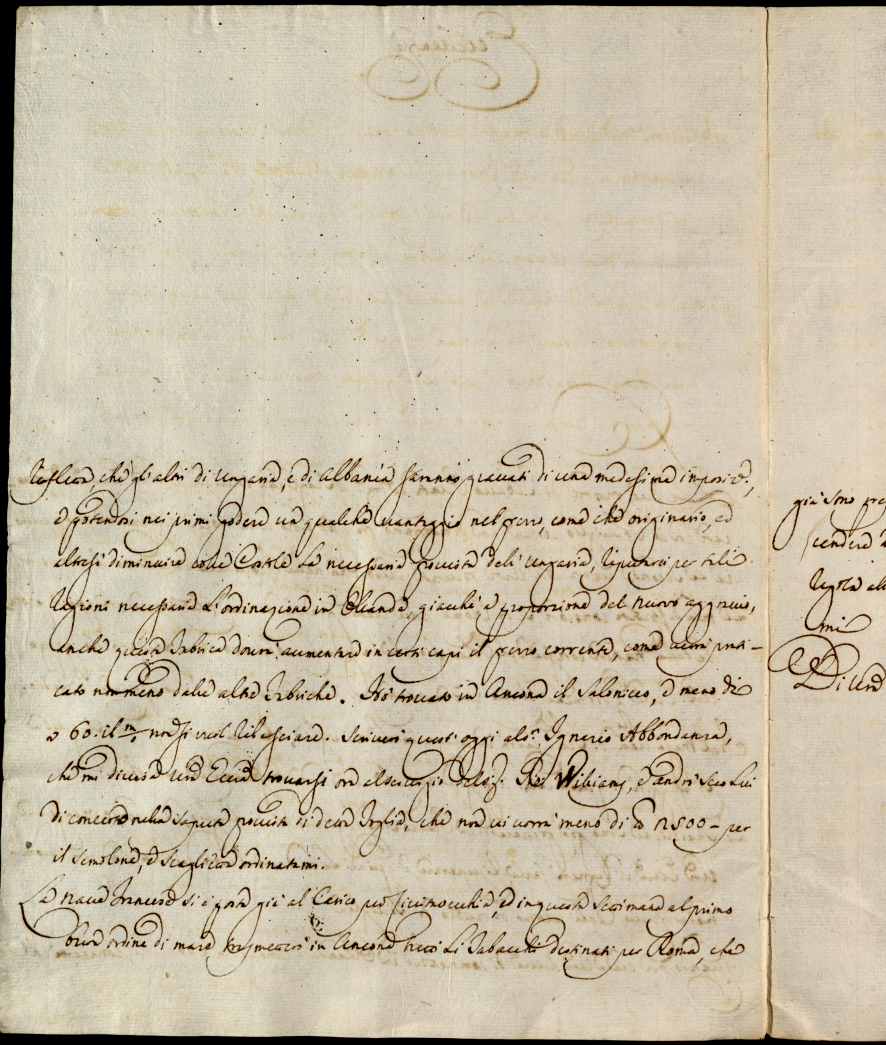 che gl'altri di Ungaria, e di Albania saranno gravati di una medesima imposiz.e,
e potendosi nei primi godere un qualche vantaggio nel prezzo, come che originario, ed
altresì diminuire colle Costole la necessaria provista dell'Ungaria, per tali
ragioni necessaria l'ordinazione in Olanda, giacchè a proporzione del nuovo aggravio,
anche questa Fabrica dovrà aumentare in certi capi il prezzo corrente, come verrà prati-
cato nommeno dalle altre Fabriche. Hò trovato in Ancona il Salonicco, a meno di
60. il m/ non si vuol rilasciare. Scriverò quest'oggi al S.r Ignazio Abbondanza,
che mi diceva Vra Eccza trovarsi ora al servizio del S.r Wilians, e andrò seco lui
di concerto nella saputa provista di detta foglia, che non vi vorrà meno di 12500- per
il Semolone, e Scaglietta ordinatami.
La nave Francese si è posta già al Carico per Civitavecchia, ed in questa Settimana al primo
buon ordine di mare, trasmetterò in Ancona Li Tabacchi destinati per Roma, che
già sono pre
regola al
mi
Di Vra